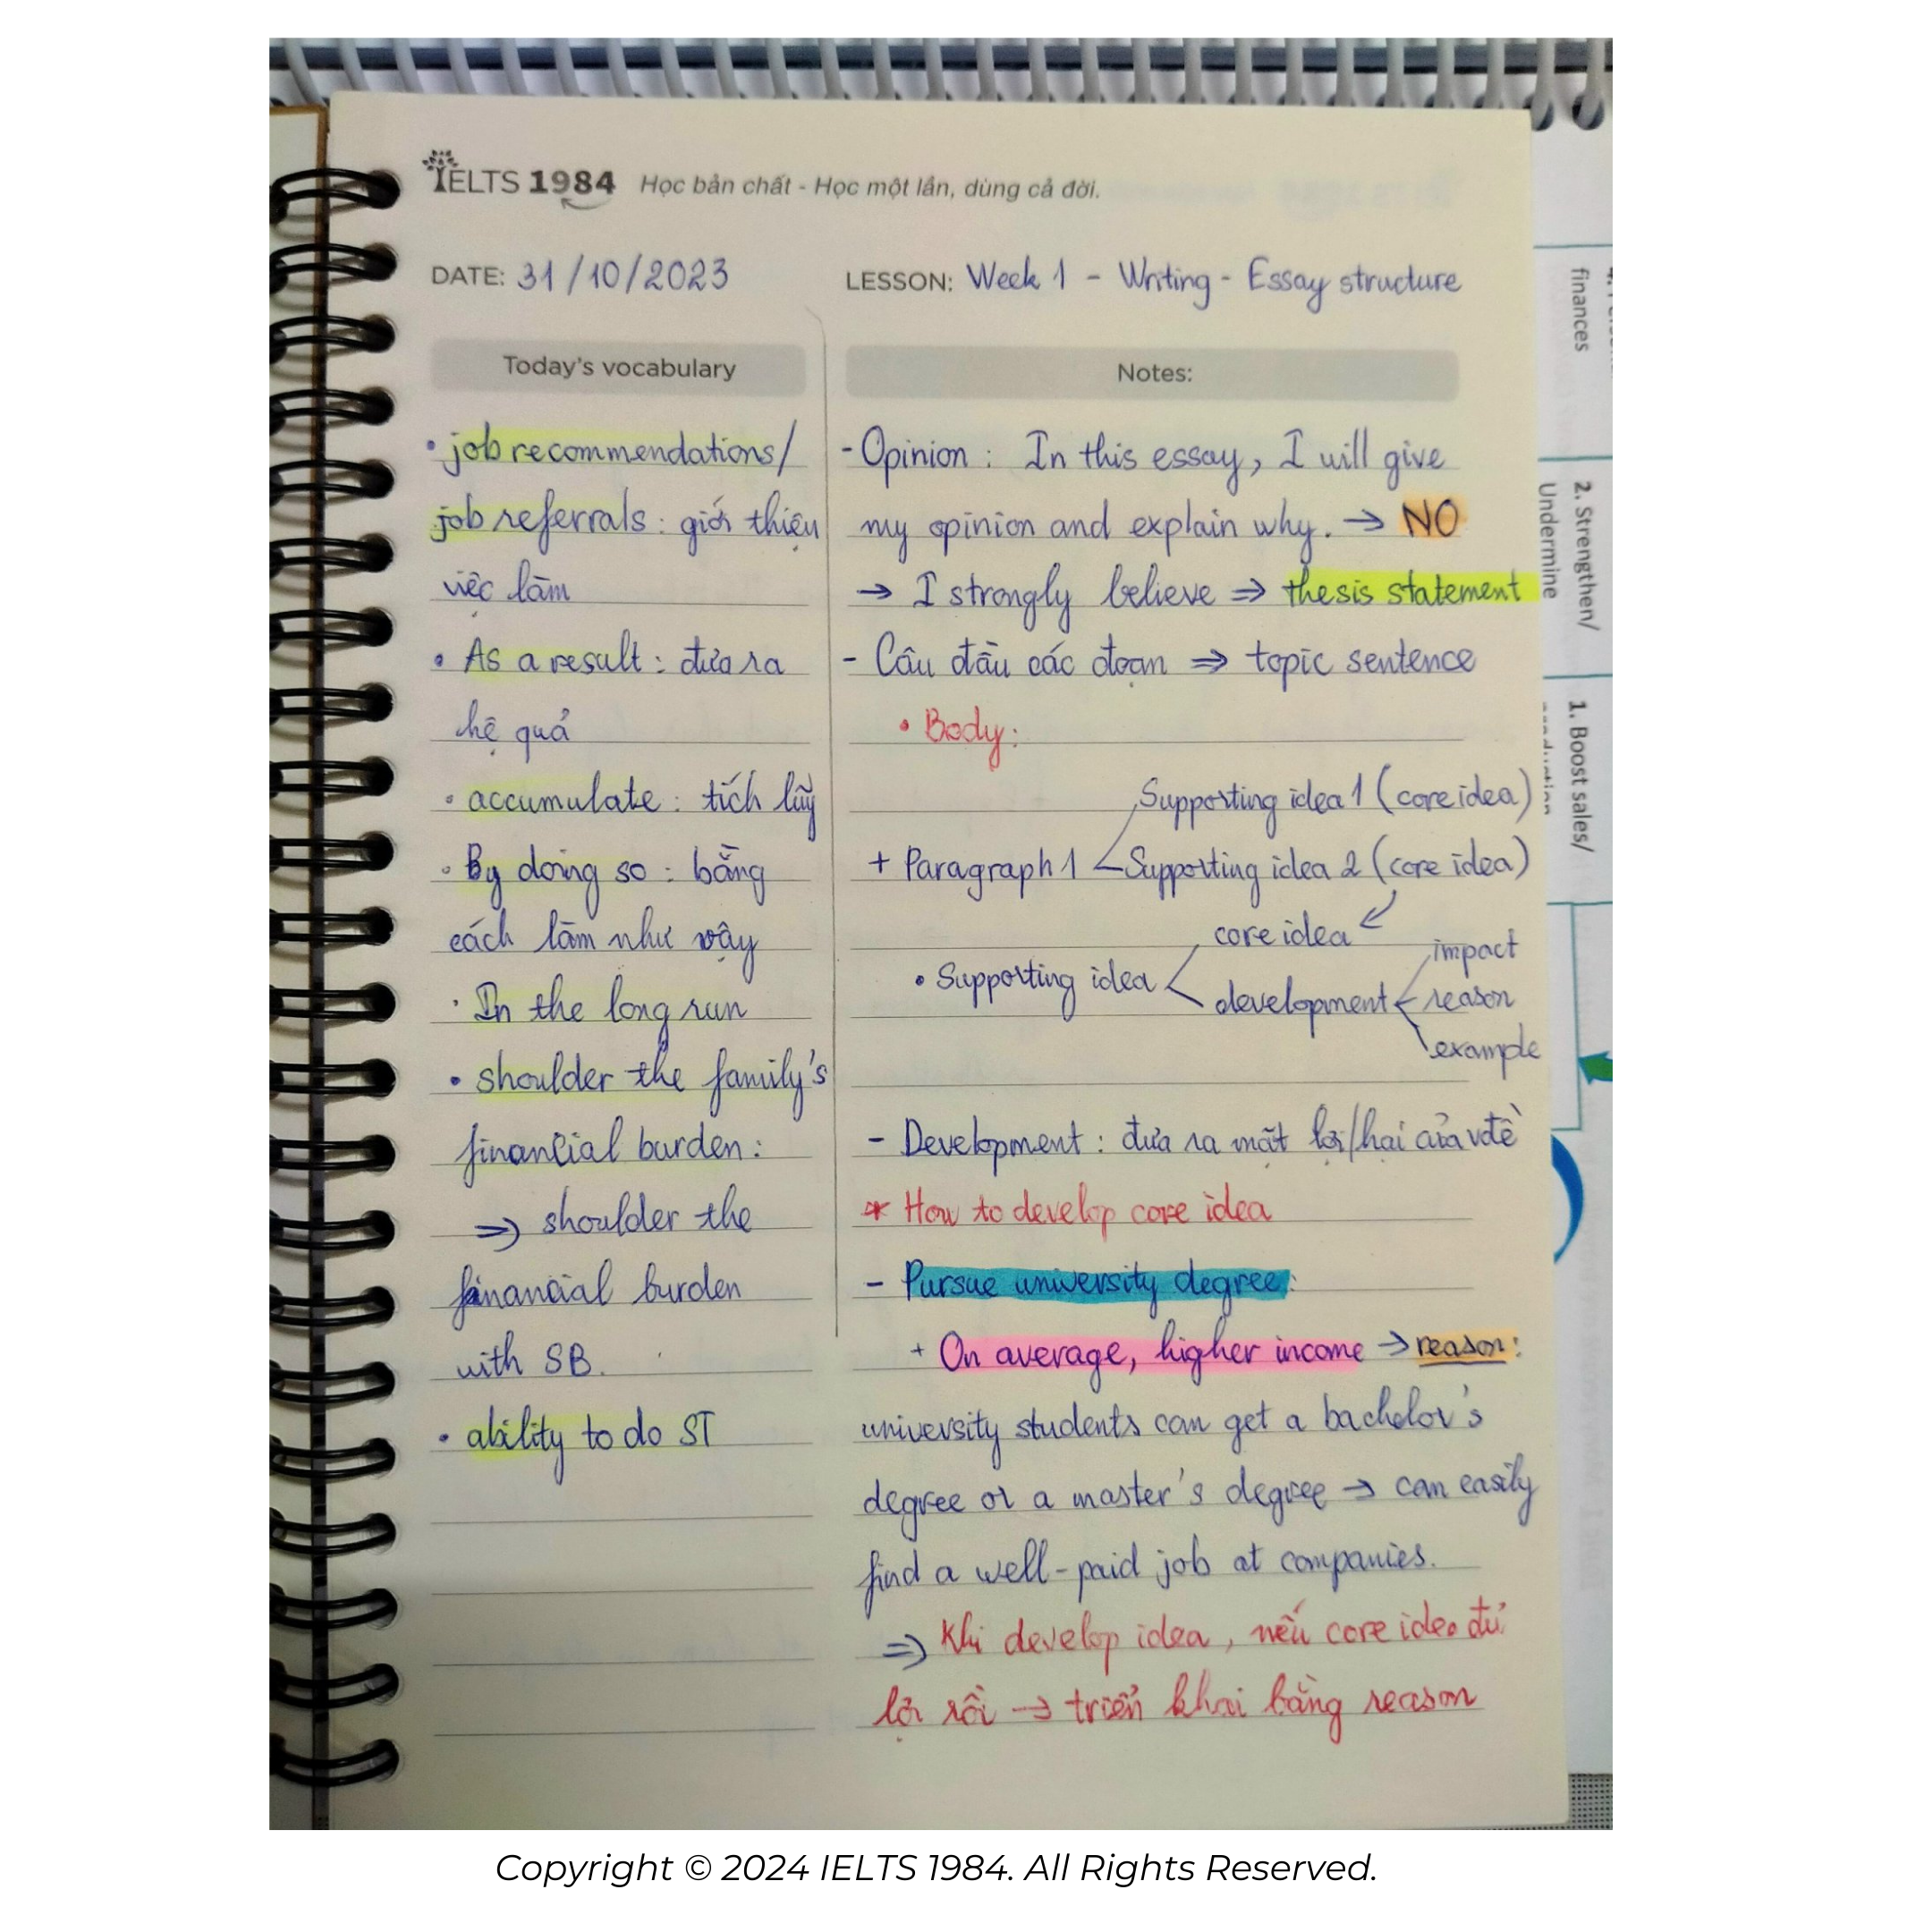 IELTS 1984 Học bản chất - Học một lần, dùng cả đời.
DATE: 31/10/2023
LESSON: Week 1 - Writing - Essay structure
Today's vocabulary
• job recommendations/
job referrals: giới thiệu
việc làm
• As a result: đưa ra
hệ quả
• accumulate: tích lũy
• By doing so: bằng
cách làm như vậy
• In the long run
• shoulder the family's
financial burden:
⇒ shoulder the
financial burden
with SB.
• ability to do ST
Notes:
- Opinion: In this essay, I will give
my opinion and explain why. → NO
→ I strongly believe ⇒ thesis statement
- Câu đầu các đoạn ⇒ topic sentence
• Body:
Supporting idea 1 (core idea)
+ Paragraph 1 Supporting idea 2 (core idea)
core idea
impact
• Supporting idea
development reason
example
- Development: đưa ra mặt lợi/hại của vđề
* How to develop core idea
- Pursue university degree:
+ On average, higher income → reason:
university students can get a bachelor's
degree or a master's degree → can easily
find a well-paid job at companies.
⇒ Khi develop idea, nếu core idea đủ
lợi rồi → triển khai bằng reason
finances
2. Strengthen/
Undermine
1. Boost sales/
Copyright © 2024 IELTS 1984. All Rights Reserved.